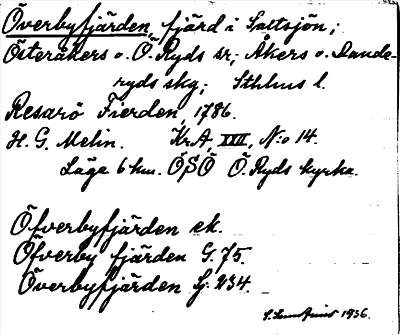 Överbyfjärden, fjärd i Saltsjön;
Österåkers o. Ö. Ryds sr; Åkers o. Dande-
ryds skg; Sthlms l.
Resarö Fierden, 1786.
H. G. Melin. KrA, XXII, N:o 14.
Läge 6 km. ÖSÖ Ö. Ryds kyrka.
Öfverbyfjärden ek.
Öfverby fjärden G. 75.
Överbyfjärden Gj. 234.
1936.